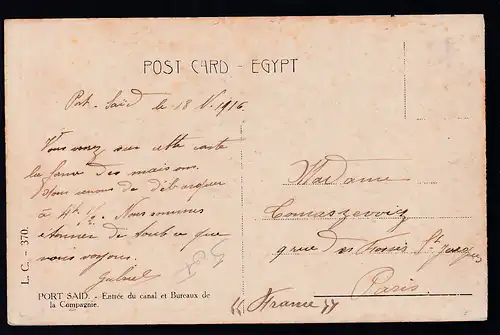 POST CARD - EGYPT
Port-Saïd le 18 V. 1916
Vous voyez sur cette carte
la forme des maisons.
Nous venons de débarquer
à 4h 1/2. Nous sommes
étonner de tout ce que
nous voyons.
Gabriel
Madame
Tomaszewviz
rue des Fossés St Jacques
Paris.
France
L. C. - 370.
PORT SAID. - Entrée du canal et Bureaux de
la Compagnie.